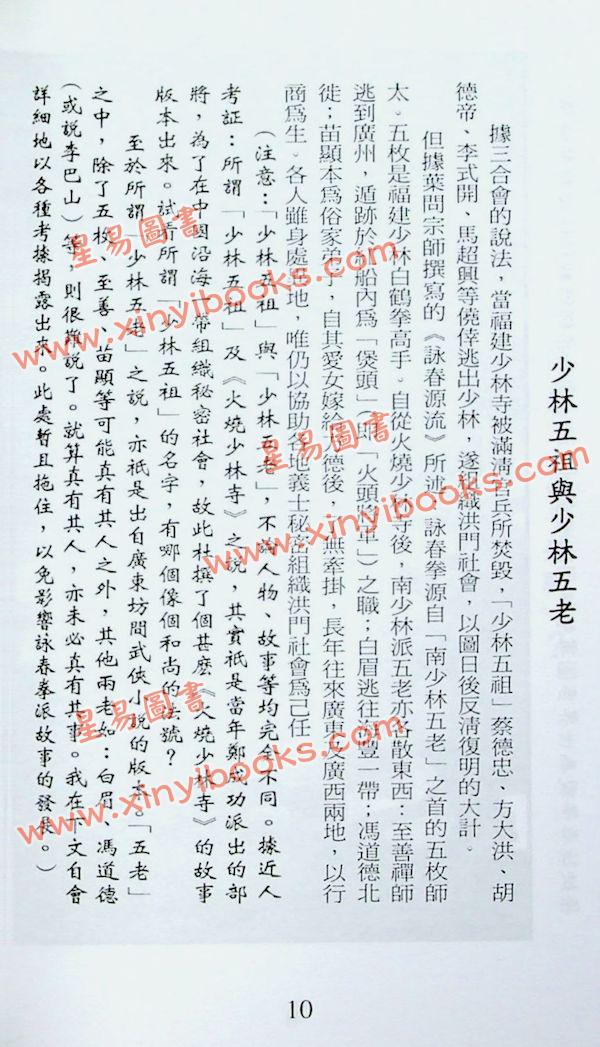 少林五祖與少林五老
據三合會的說法，當福建少林寺被滿清官兵所焚毀，「少林五祖」蔡德忠、方大洪、胡
德帝、李式開、馬超興等僥倖逃出少林，遂組織洪門社會，以圖日後反清復明的大計。
但據葉問宗師撰寫的《詠春源流》所述，詠春拳源自「南少林五老」之首的五枚師
太。五枚是福建少林白鶴拳高手。自從火燒少林寺後，南少林派五老亦各散東西：至善禪師
逃到廣州，遁跡於船內為「煲頭」（即「火頭將軍」）之職；白眉逃往豐一帶；馮道德北
徙；苗顯本為俗家弟子，自其愛女嫁給德後，了無牽掛，長年往來廣東及廣西兩地，以行
商為生。各人雖身處各地，唯仍以協助各地義士秘密組織洪門社會為己任
（注意：「少林五祖」與「少林五老」，不論人物、故事等均完全不同。據近人
考証：所謂「少林五祖」及《火燒少林寺》之說，其實祇是當年鄭成功派出的部
將，為了在中國沿海一帶組織秘密社會，故此杜撰了個甚麽《火燒少林寺》的故事
版本出來。試看所謂「少林五祖」的名字，有哪個像個和尚的法號？
至於所謂「少林五老」之說，亦祇是出自廣東坊間武俠小說的版本。「五老」
之中，除了五枚、至善、苗顯等可能真有其人之外，其他兩老如：白眉、馮道德
（或說李巴山）等，則很難說了。就算真有其人，亦未必真有其事。我在下文自會
詳細地以各種考據揭露出來。此處暫且拖住，以免影響詠春拳派故事的發展。）
10
星易圖書
www.xinyibooks.com
星易圖書
www.xinyibooks.com
星易圖書
www.xinyibooks.com
星易圖書
www.xinyibooks.com